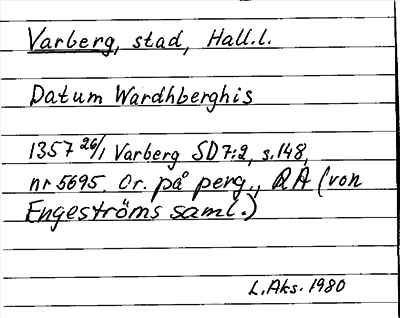 Varberg, stad, Hall.l.
Datum Wardhberghis
1357 26/1 Varberg SD 7:2, s.148,
nr 5695. Or. på perg., RA (von
Engeströms saml.)
L.Aks. 1980